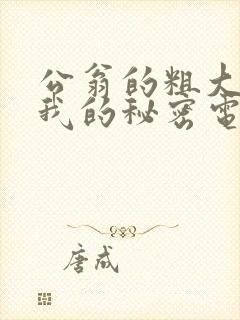 公翁的粗大
我的秘密电
唐成